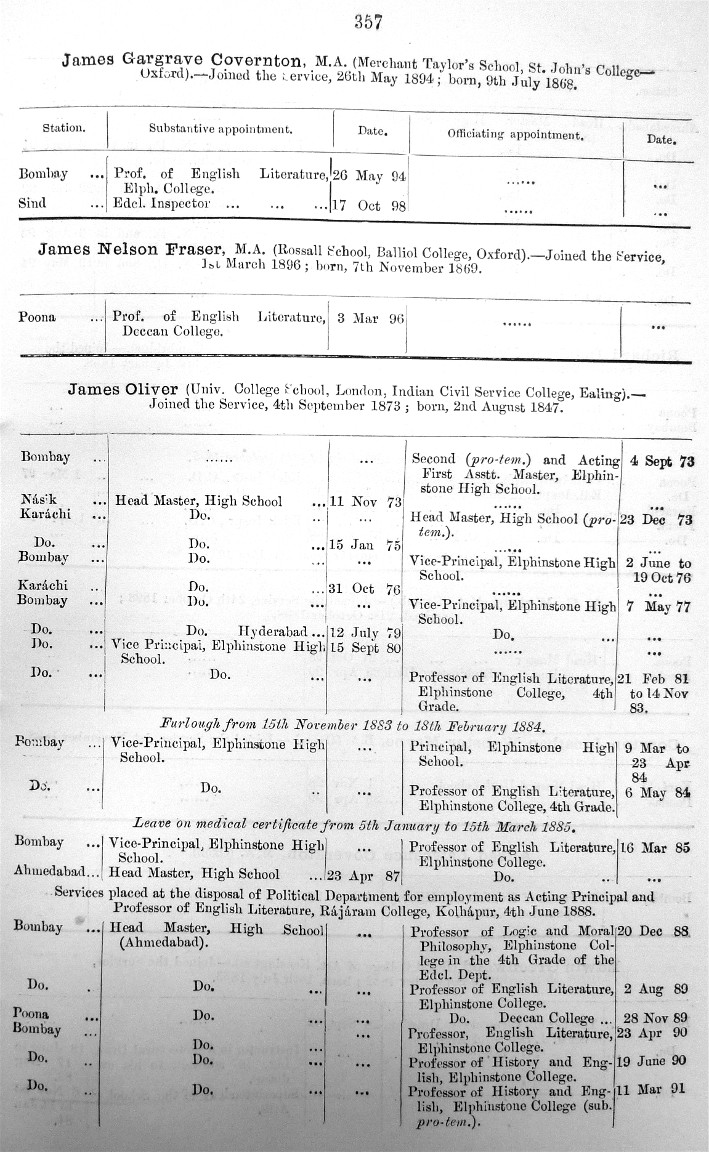 357
James Gargrave Covernton, M.A. (Merchant Taylor's School, St. John's College—
Oxford).—Joined the Service, 26th May 1894; born, 9th July 1868.
Station. Substantive appointment. Date. Officiating appointment. Date.
Bombay ... Prof. of English Literature, 26 May 94 ...... ...
Elph. College.
Sind ... Edcl. Inspector ... ... ... 17 Oct 98 ...... ...
James Nelson Fraser, M.A. (Rossall School, Balliol College, Oxford).—Joined the Service,
1st March 1896; born, 7th November 1869.
Poona ... Prof. of English Literature, 3 Mar 96 ...... ...
Deccan College.
James Oliver (Univ. College School, London, Indian Civil Service College, Ealing).—
Joined the Service, 4th September 1873; born, 2nd August 1847.
Bombay ... ...... ... Second (pro-tem.) and Acting 4 Sept 73
First Asstt. Master, Elphin-
stone High School.
Násik ... Head Master, High School ... 11 Nov 73 ...... ...
Karáchi ... Do. .. ... Head Master, High School (pro- 23 Dec 73
tem.).
Do. ... Do. ... 15 Jan 75 ...... ...
Bombay ... Do. ... ... Vice-Principal, Elphinstone High 2 June to
School. 19 Oct 76
Karáchi .. Do. ... 31 Oct 76 ...... ...
Bombay ... Do. ... ... Vice-Principal, Elphinstone High 7 May 77
School.
Do. ... Do. Hyderabad ... 12 July 79 Do. ... ...
Do. ... Vice Principal, Elphinstone High 15 Sept 80 ...... ...
School.
Do. ... Do. ... ... Professor of English Literature, 21 Feb 81
Elphinstone College, 4th to 14 Nov
Grade. 83.
Furlough from 15th November 1883 to 18th February 1884.
Bombay ... Vice-Principal, Elphinstone High ... Principal, Elphinstone High 9 Mar to
School. School. 23 Apr
84
Do. ... Do. .. ... Professor of English Literature, 6 May 84
Elphinstone College, 4th Grade.
Leave on medical certificate from 5th January to 15th March 1885.
Bombay ... Vice-Principal, Elphinstone High ... Professor of English Literature, 16 Mar 85
School. Elphinstone College.
Ahmedabad... Head Master, High School ... 23 Apr 87 Do. ... ...
Services placed at the disposal of Political Department for employment as Acting Principal and
Professor of English Literature, Rájáram College, Kolhápur, 4th June 1888.
Bombay ... Head Master, High School ... Professor of Logic and Moral 20 Dec 88
(Ahmedabad). Philosophy, Elphinstone Col-
lege in the 4th Grade of the
Edcl. Dept.
Do. . Do. ... ... Professor of English Literature, 2 Aug 89
Elphinstone College.
Poona ... Do. ... ... Do. Deccan College ... 28 Nov 89
Bombay ... ... Professor, English Literature, 23 Apr 90
Do. ... Elphinstone College.
Do. .. Do. ... ... Professor of History and Eng- 19 June 90
lish, Elphinstone College.
Do. .. Do. ... ... Professor of History and Eng- 11 Mar 91
lish, Elphinstone College (sub.
pro-tem.).